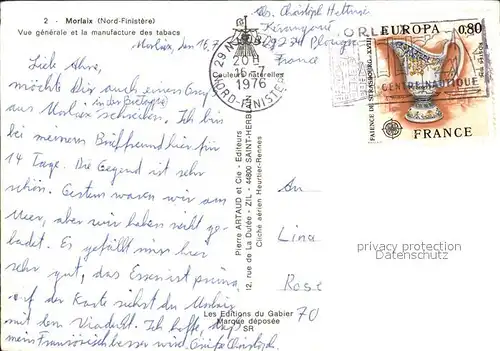 2 - Morlaix (Nord-Finistère)
Vue générale et la manufacture des tabacs
Morlaix, 16.7.
Abs. Christoph
Plouga
France
Couleurs naturelles
29 MORLAIX
20 H
16-7
1976
NORD-FINISTERE
CENTRE NAUTIQUE
EUROPA 0,80
FAIENCE DE STRASBOURG-XVIII
FRANCE
Liebe
möchte Dir auch einen Gruß
in der Bretagne
aus Morlaix schreiben. Ich bin
bei meinem Brieffreund hier für
14 Tage. Die Gegend ist sehr
schön. Gestern waren wir am
Meer, aber wir haben nicht ge-
badet. Es gefällt mir hier
sehr gut, das Essen ist prima,
auf der Karte siehst du Morlaix
mit dem Viadukt. Ich hoffe, daß
mein Französisch besser wird. Christoph.
Pierre ARTAUD et Cie - Editeurs
12, rue de la Dutée - ZIL - 44800 SAINT-HERBLAIN
Cliché aérien Heurtier-Rennes
An
Lina
Rose
70
Les Editions du Gabier
Marque déposée
SR
privacy protection
Datenschutz